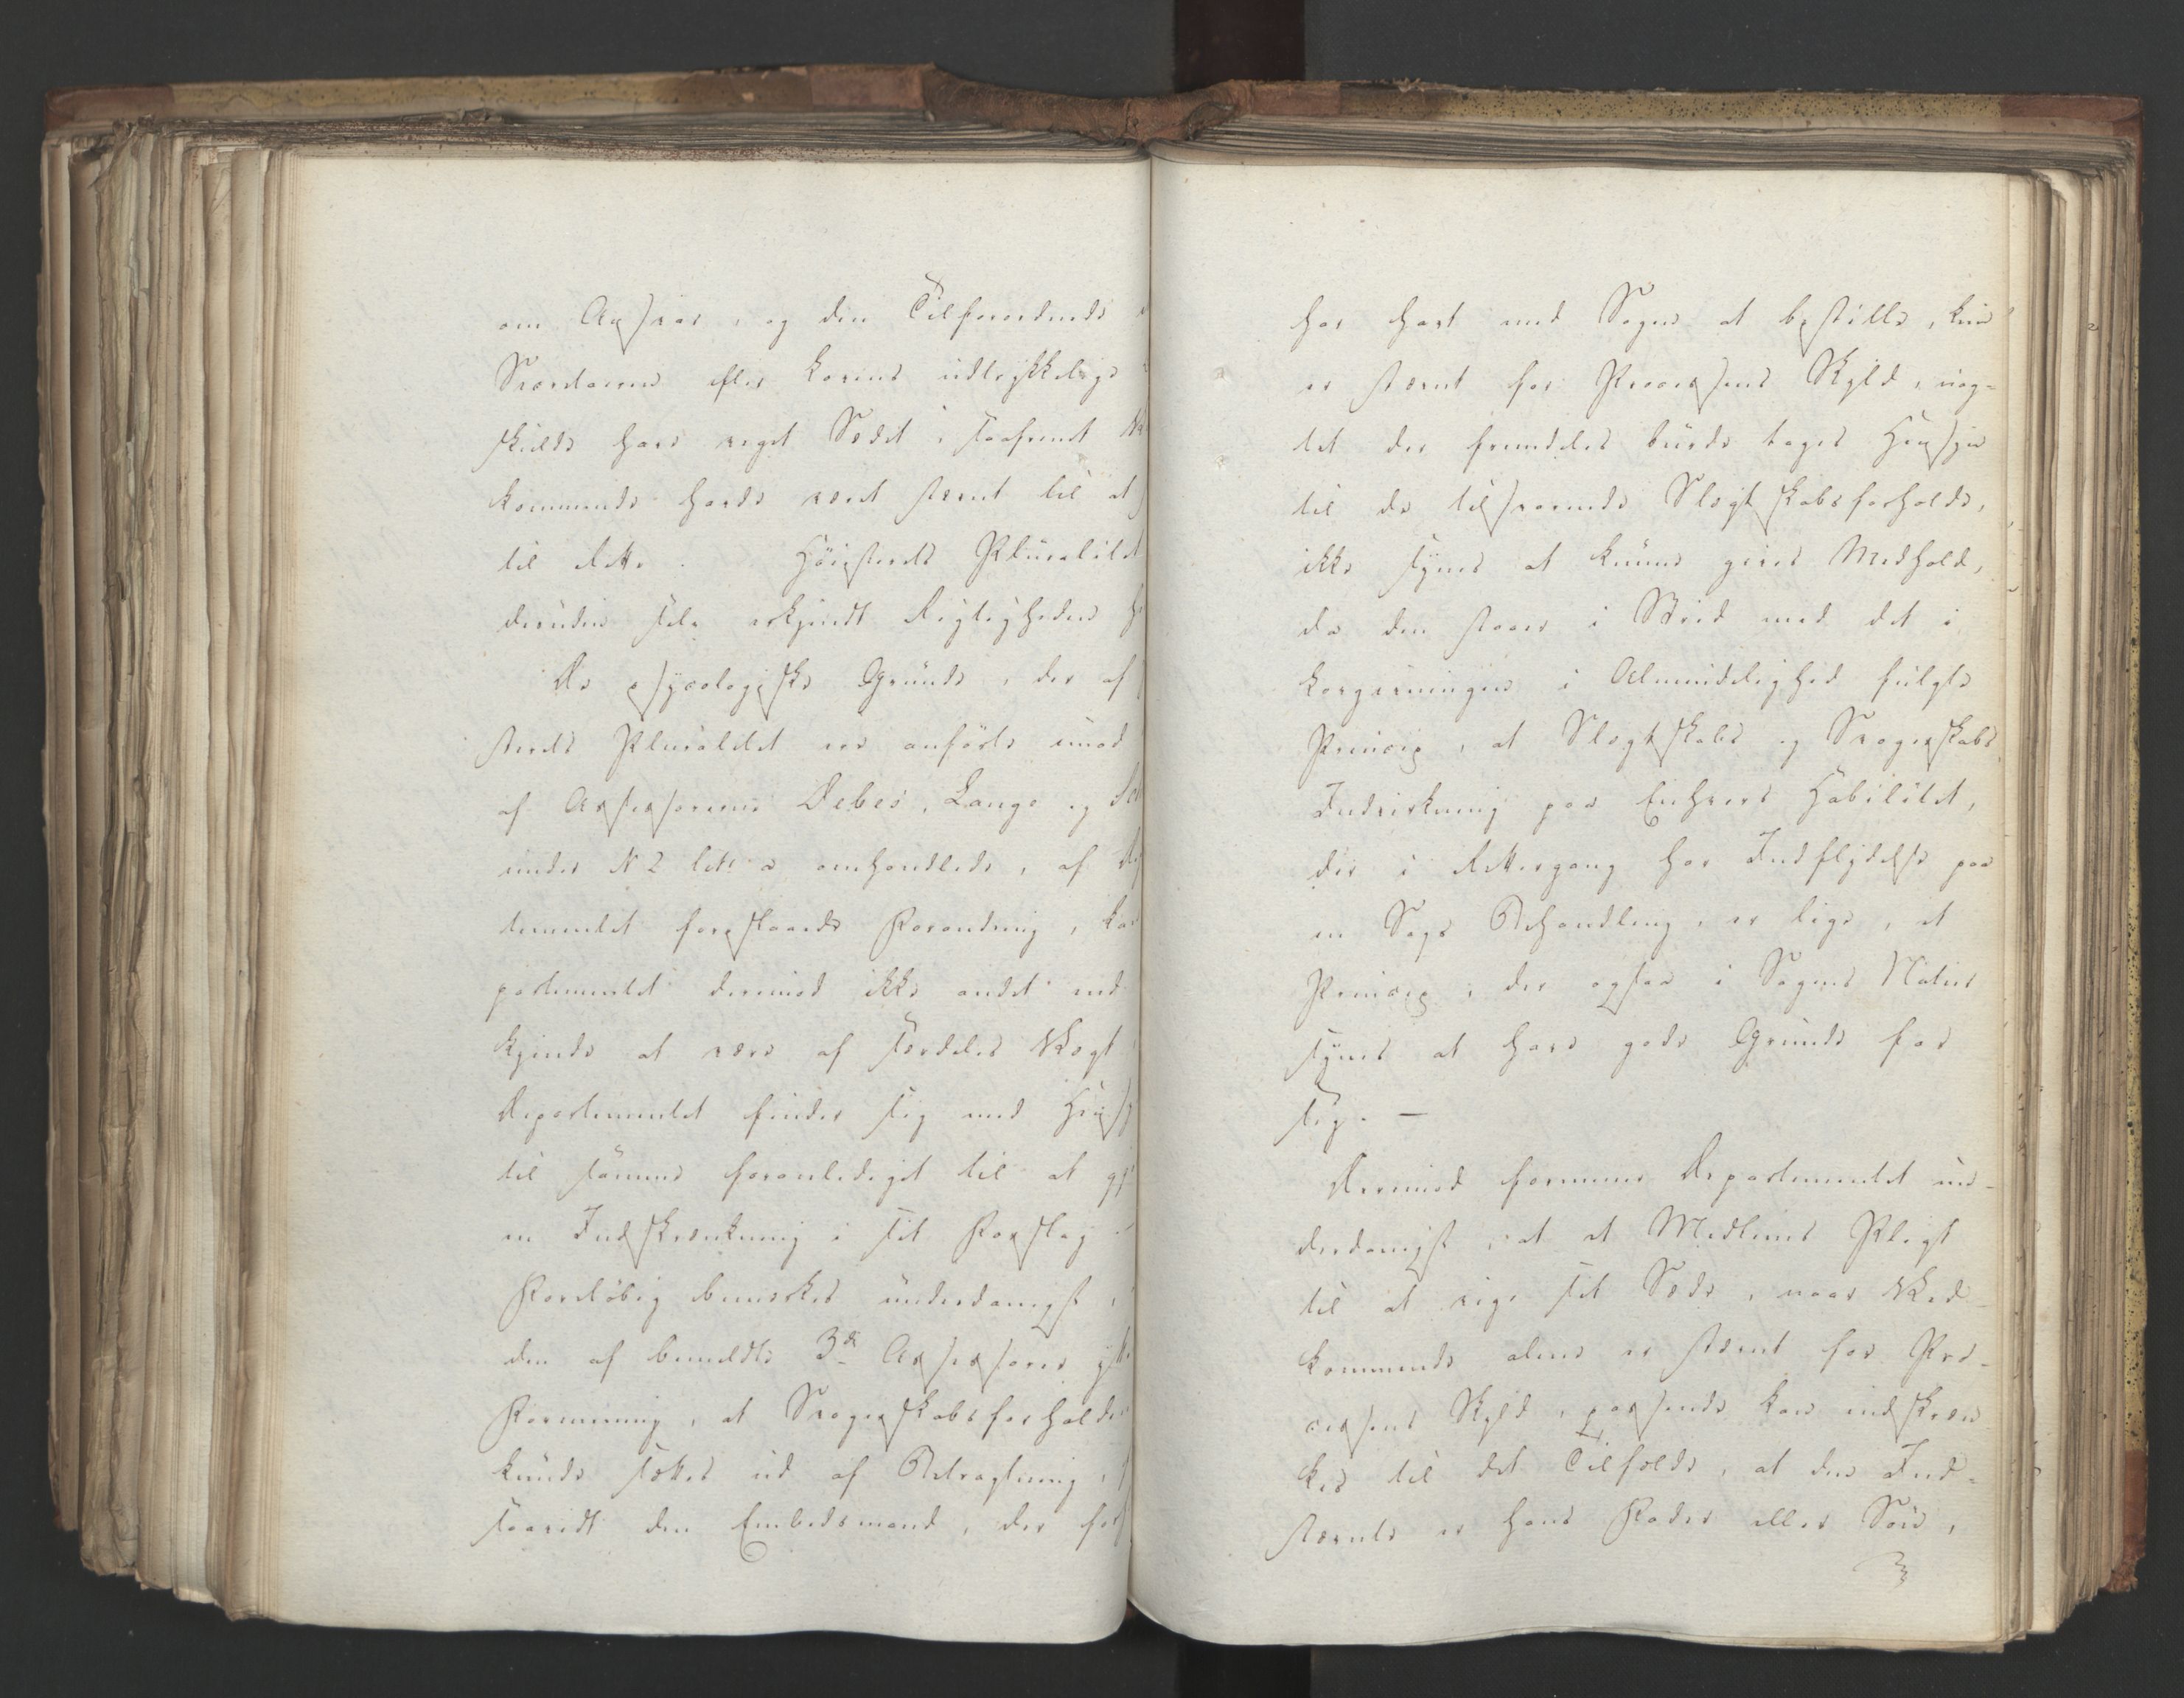 om Ansvar, og den Tilforordnede
Sværdarm efter Lovens udtrykkelige
skulde have veget Sædet, saafremt Ved
kommende havde været stævnt til at
til Rette. Høiesterets Pluralitet
desuden selv erkjendt Rigtigheden
De psycologiske Grunde, der af
sterets Pluralitet ere anførte imod
af Assessorerne Debes, Lange og
under N 2 litr a omhandlede, af
tementet foreslaaede Forandring, kan
partementet derimod ikke andet end
kjende at være af særdeles Vægt
Departementet finder sig med Hensy
til samme foranlediget til at gj
en Indskrænkning i sit Forslag
Foreløbig bemærkes underdanigst,
den af bemeldte 3de Assessorer ytt
Formening, at Svogerskabsforholdet
kunde sættes ud af Betragtning,
saavidt den Embedsmand, der for
har havt med Sagen at bestille, kun
er stævnt for Processens Skyld, uag-
tet der fremdeles burde tages Hensyn
til de tilsvarende Slægtskabsforholde,
ikke synes at kunne gives Medhold,
da den staaer i Strid med det i
Lovgivningen i Almindelighed fulgte
Princip, at Slægtskabs og Svogerskabs
Indvirkning paa Enhvers Habilitet,
der i Rettergang har Indflydelse paa
en Sags Behandling, er lige, et
Princip, der ogsaa i Sagens Natur
synes at have gode Grunde for
sig. —
Derimod formener Departementet un-
derdanigst, at et Medlems Pligt
til at vige sit Sæde, naar Ved-
kommende alene er stævnt for Pro-
cessens Skyld, passende kan indskræn
kes til det Tilfælde, at den Ind-
stævnte er hans Fader eller Søn,